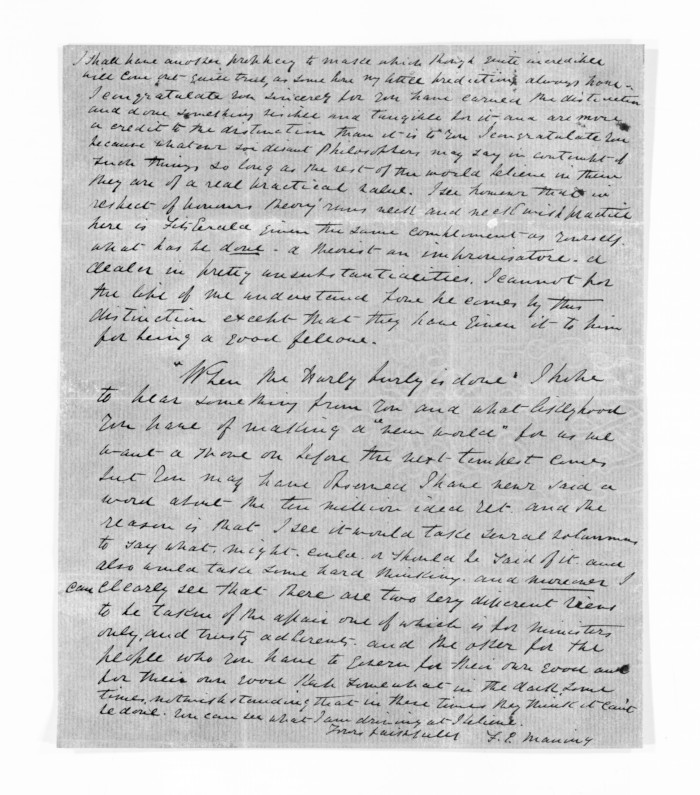 I shall have another prophecy to make which though quite incredible
will come out quite true, as some how my little predictions always have -
I congratulate you sincerely for you have earned the distinction
and done something useful and tangible for it and are more
a credit to the distinction than it is to you I congratulate you
because whatever soi disant Philosophers may say in contempt of
such things so long as the rest of the world believe in them
they are of a real practical value. I see however that in
respect of honours theory runs neck and neck with practice
here is FitzGerald given the same complement as yourself.
what has he done - a theorist an improvisatore - a
dealer in pretty unsubstantialities. I cannot for
the life of me understand how he comes by this
distinction except that they have given it to him
for being a good fellow.
"When the Hurly burly is done" I hope
to hear something from you and what likelyhood
you have of making a "new world" for us we
want a move on before the next tempest comes
but you may have observed I have never said a
word about the ten million idea yet and the
reason is that I see it would take several columns
to say what, might, could, or should be said of it and
also would take some hard thinking, and moreover I
can clearly see that there are two very different views
to be taken of the affair one of which is for ministers
only, and trusty adherents, and the other for the
people who you have to govern for their own good and
for their own good keep somewhat in the dark some
times, notwithstanding that in these times they think it can't
be done. You can see what I am driving at I believe.
Yours faithfully F. E. Maning